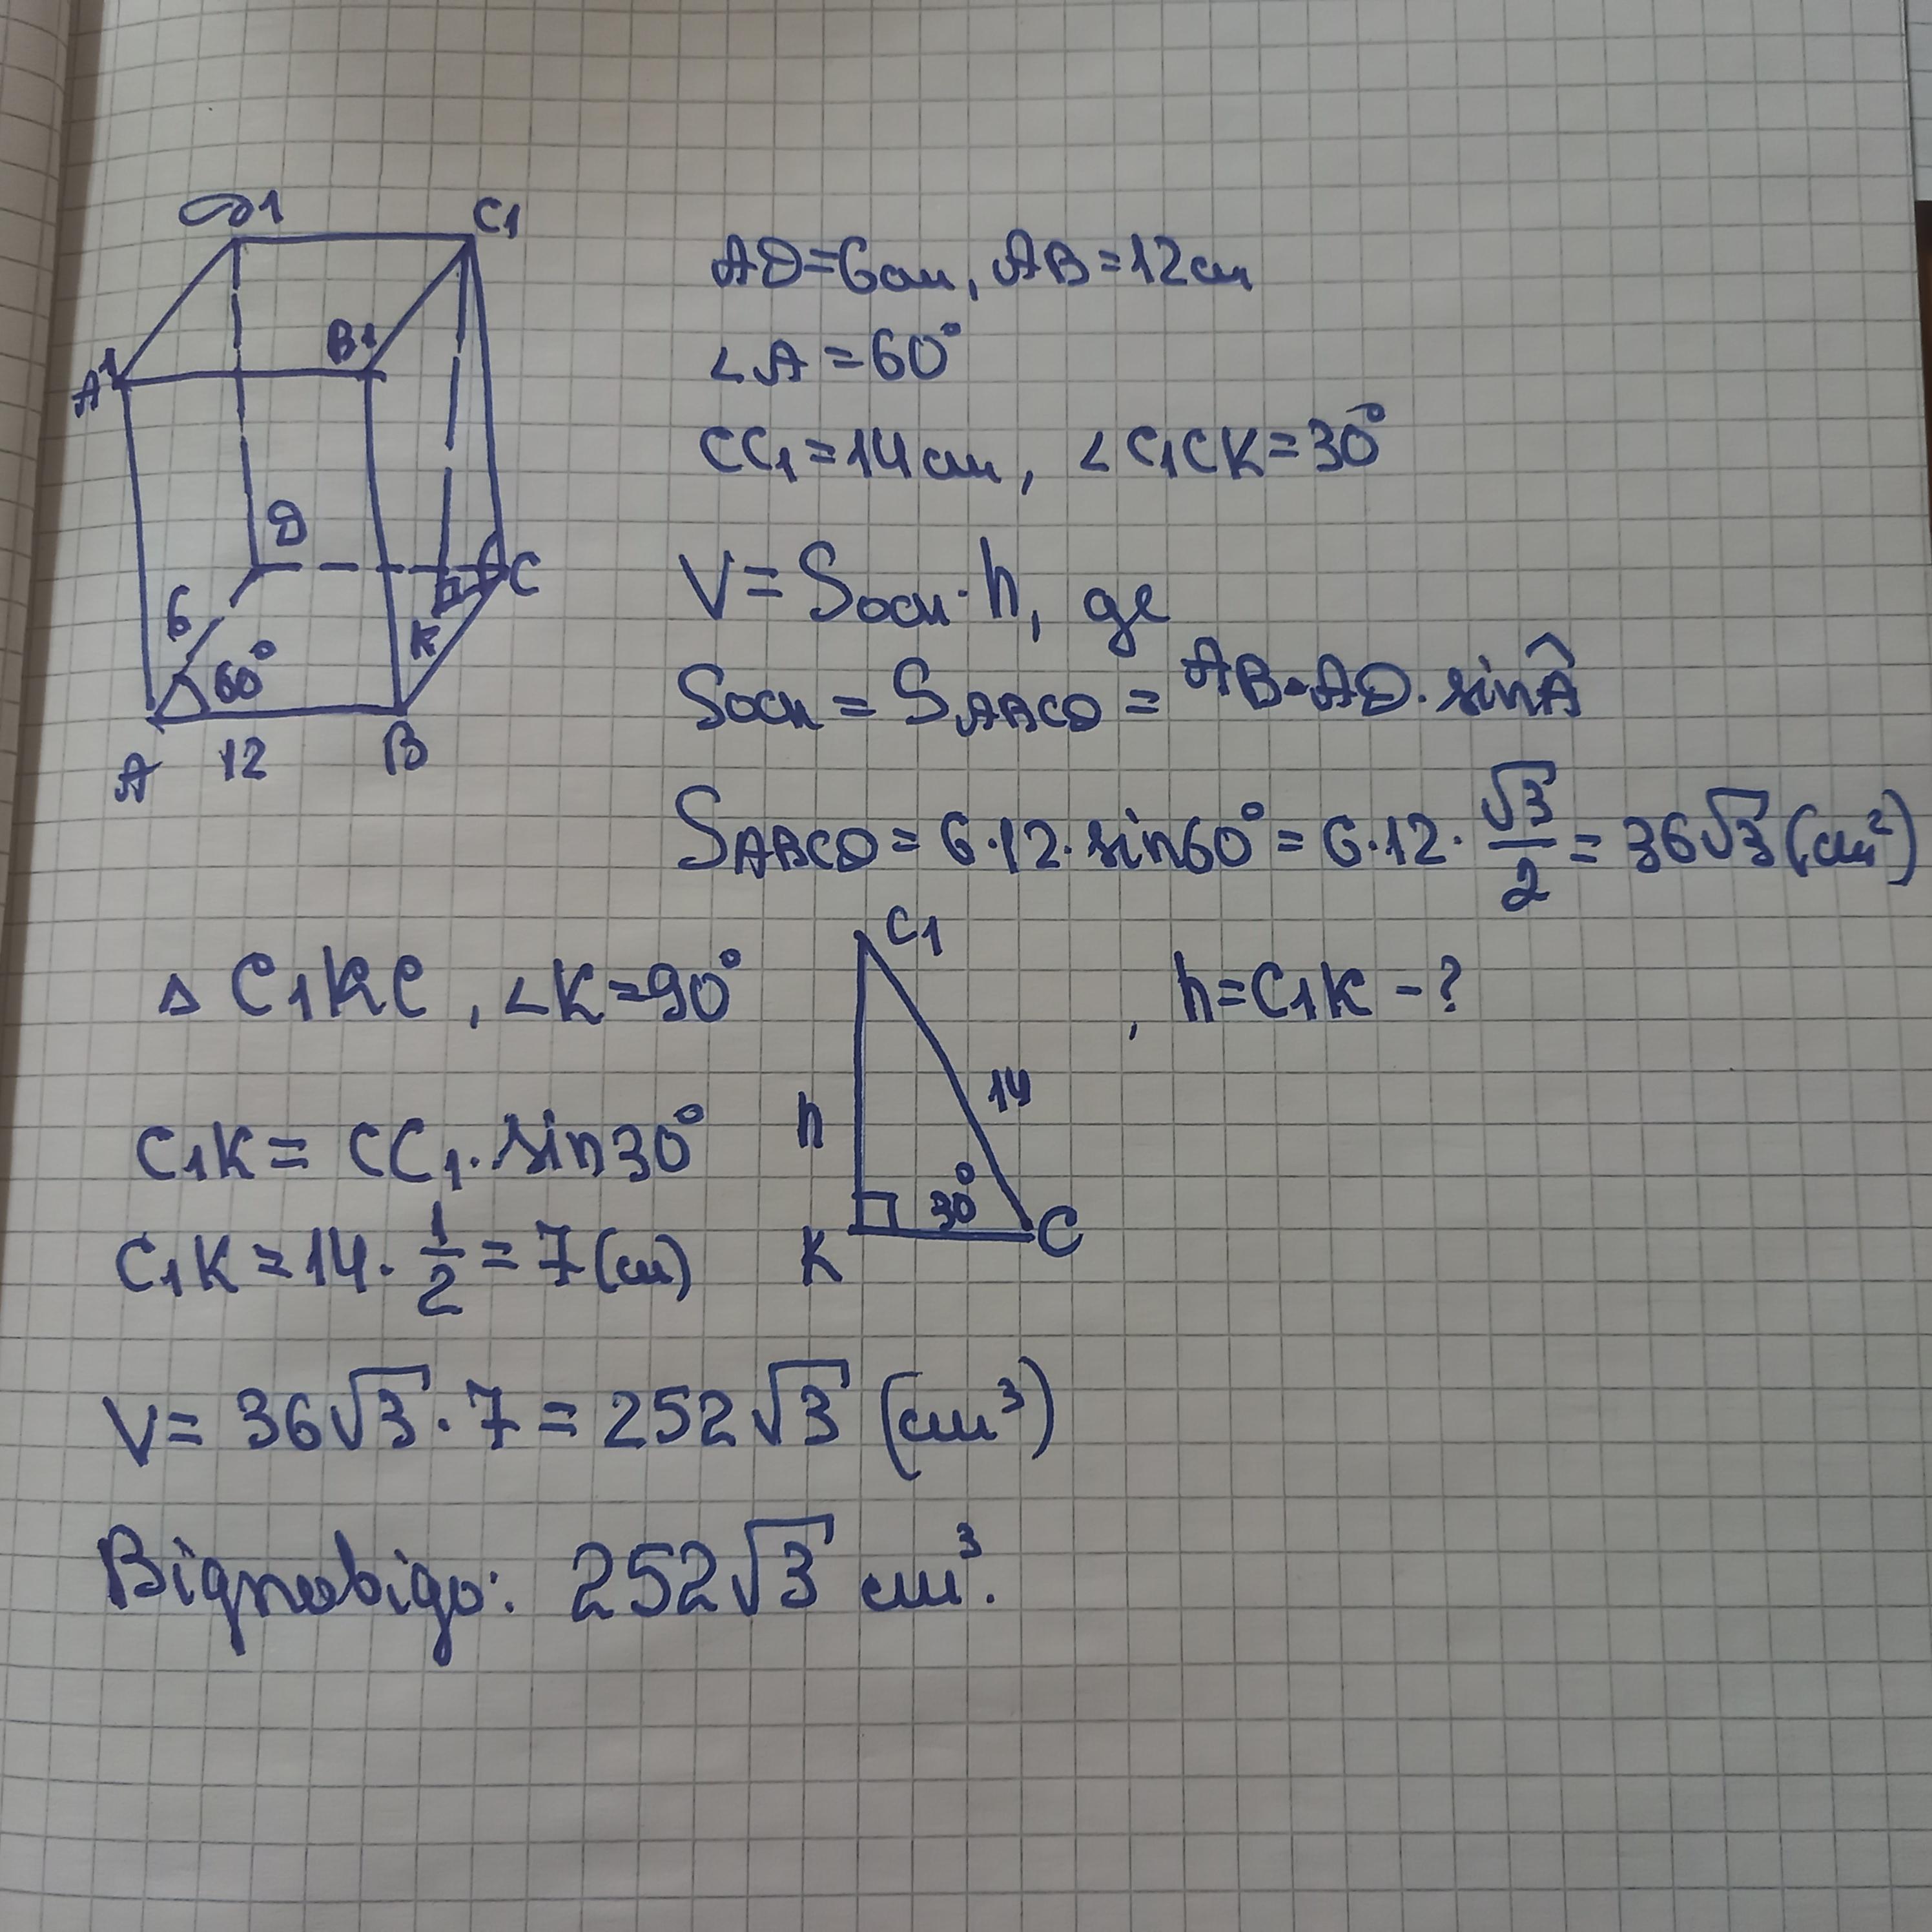 D1
C1
A1
B1
D
C
6
K
60°
A
12
B
AD=6см, AB=12см
∠A=60°
CC₁=14см, ∠C₁CK=30°
V=Sосн·h, де
Sосн=SABCD=AB·AD·sinÂ
SABCD=6·12·sin60°=6·12·√3/2=36√3(см²)
△ C₁KC, ∠K=90°
C₁
h
14
30°
K
C
, h=C₁K-?
C₁K=CC₁·sin30°
C₁K=14·1/2=7(см)
V=36√3·7=252√3 (см³)
Відповідь: 252√3 см³.